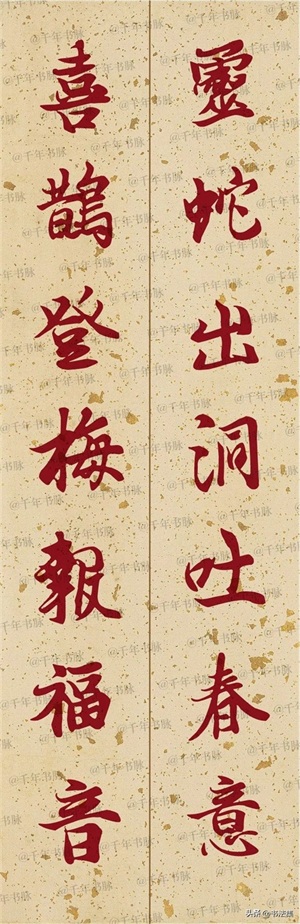 靈蛇出洞吐春意
喜鵲登梅報福音
@千年书脉
头条@书法班